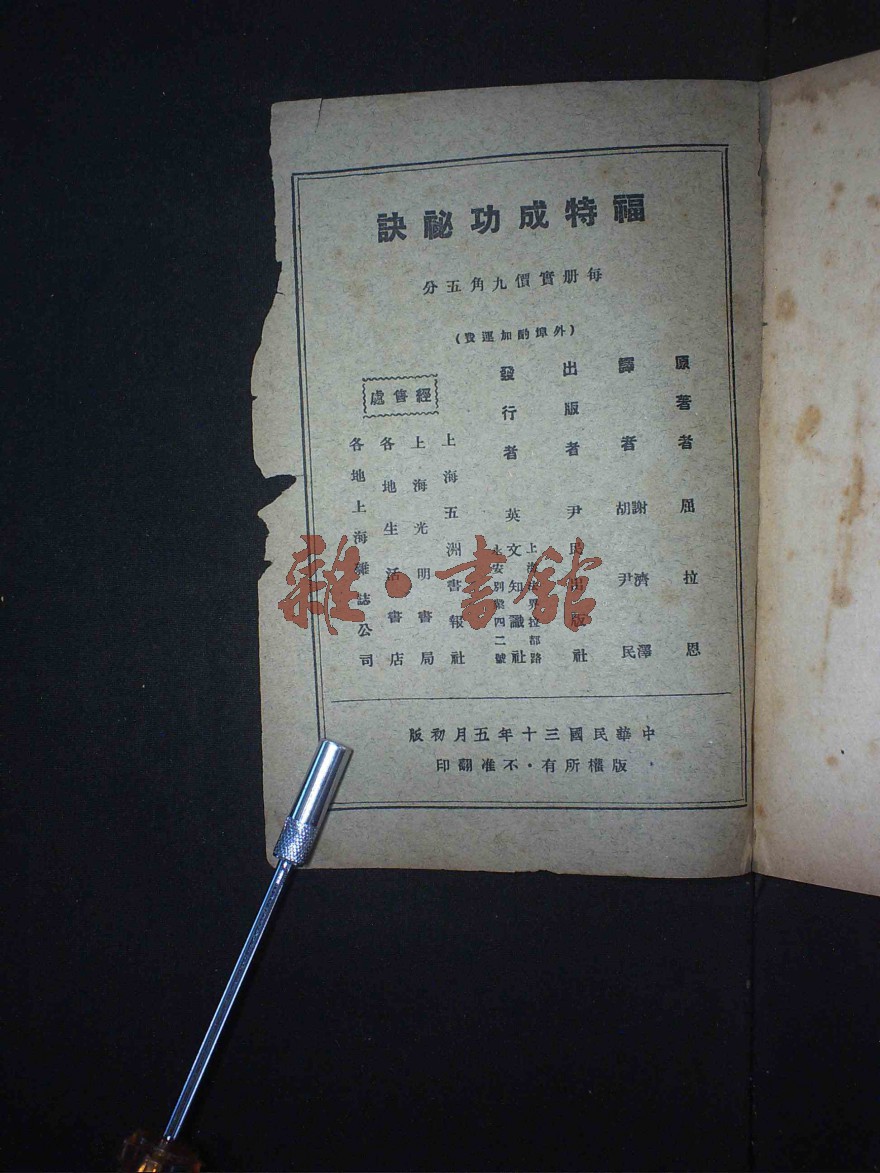 福特成功祕訣
每册實價九角五分
(外埠酌加運費)
原著者 屈拉恩
譯者 謝濟澤 胡尹民
出版者 尹民出版社
發行者 英文知識社
上海法界拉都路
永安別業四二號
經售處
上海五洲書報社
上海光明書局
各地生活書店
各地上海雜誌公司
中華民國三十年五月初版
版權所有·不准翻印
雜·書館